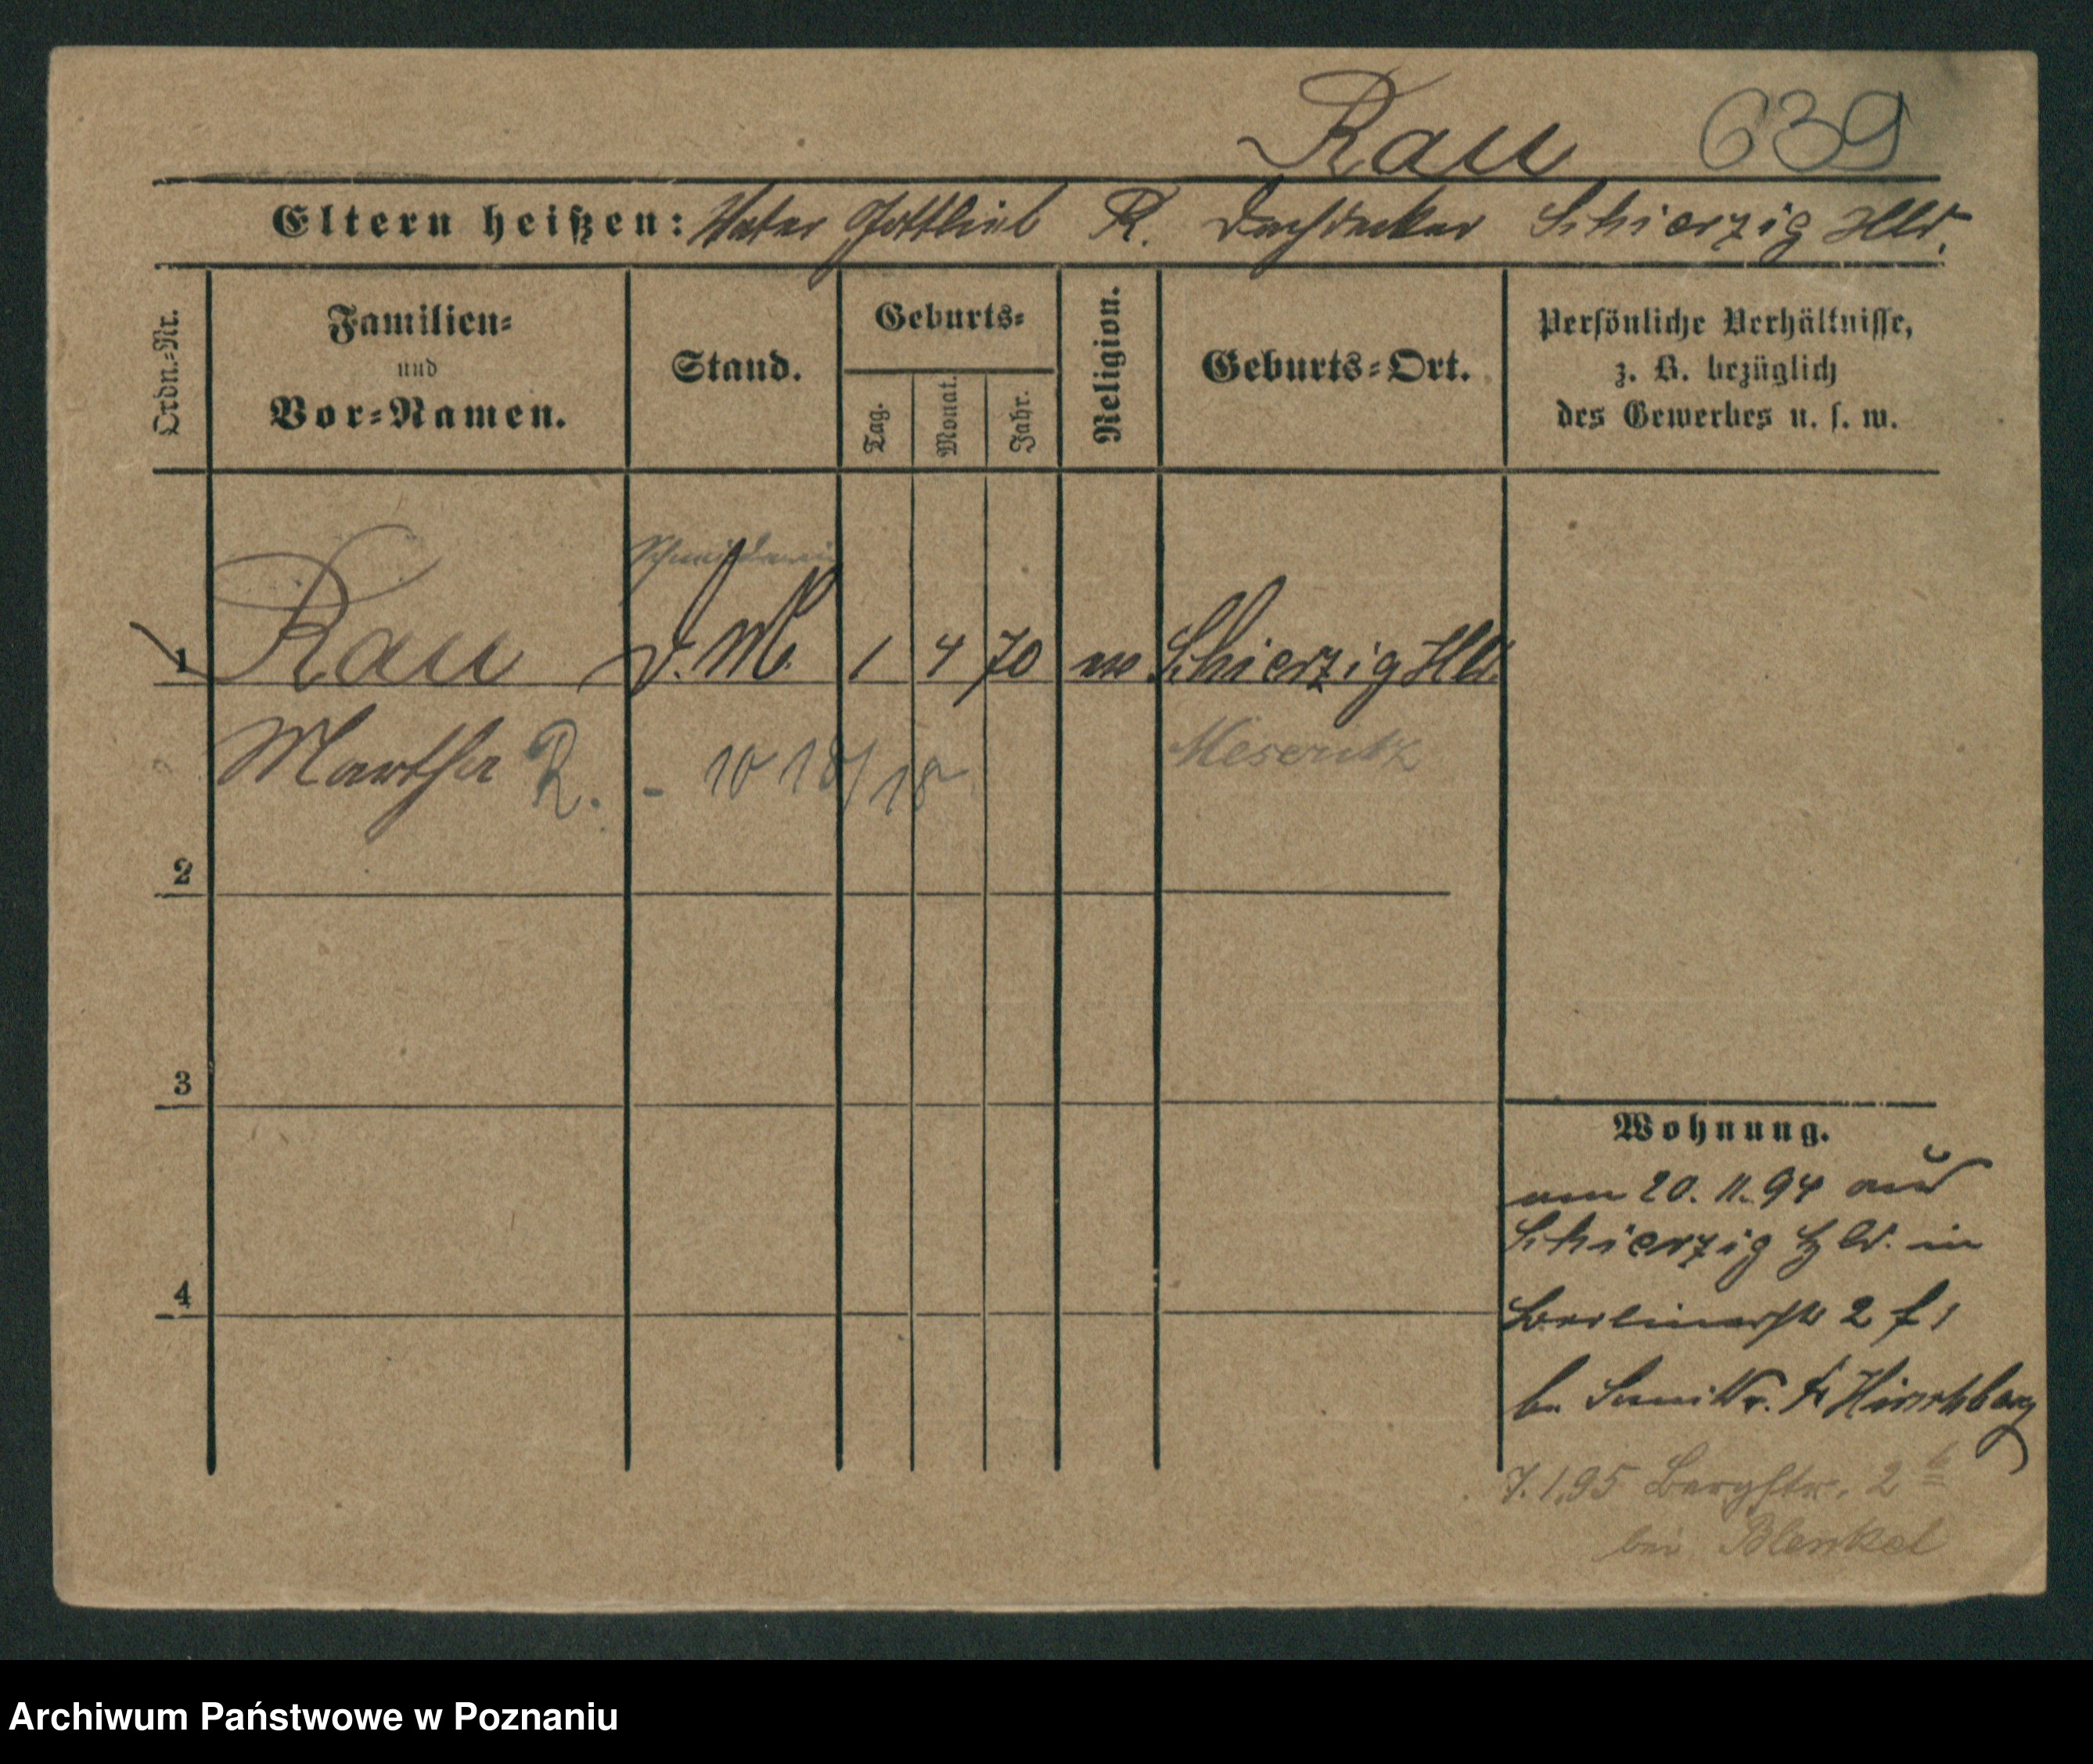 Rau 639
Eltern heißen: Vater Gottlieb R. Dachdecker Schierzig Hld.
Ordn.-Nr.
Familien-
und
Vor-Namen.
Stand.
Geburts-
Tag.
Monat.
Jahr.
Religion.
Geburts-Ort.
Persönliche Verhältnisse,
z. B. bezüglich
des Gewerbes u. s. w.
Schneiderin
1 Rau d. M. 1 4 70 ev Schierzig Hld.
Martha R. - 10 18/18 Meseritz
2
3
4
Wohnung.
am 20. 11. 94 aus
Schierzig Hld. in
Berlinerstr 2
b. Hirschberg
7.1.95 Bergstr. 2 b
bei Blenkel
Archiwum Państwowe w Poznaniu